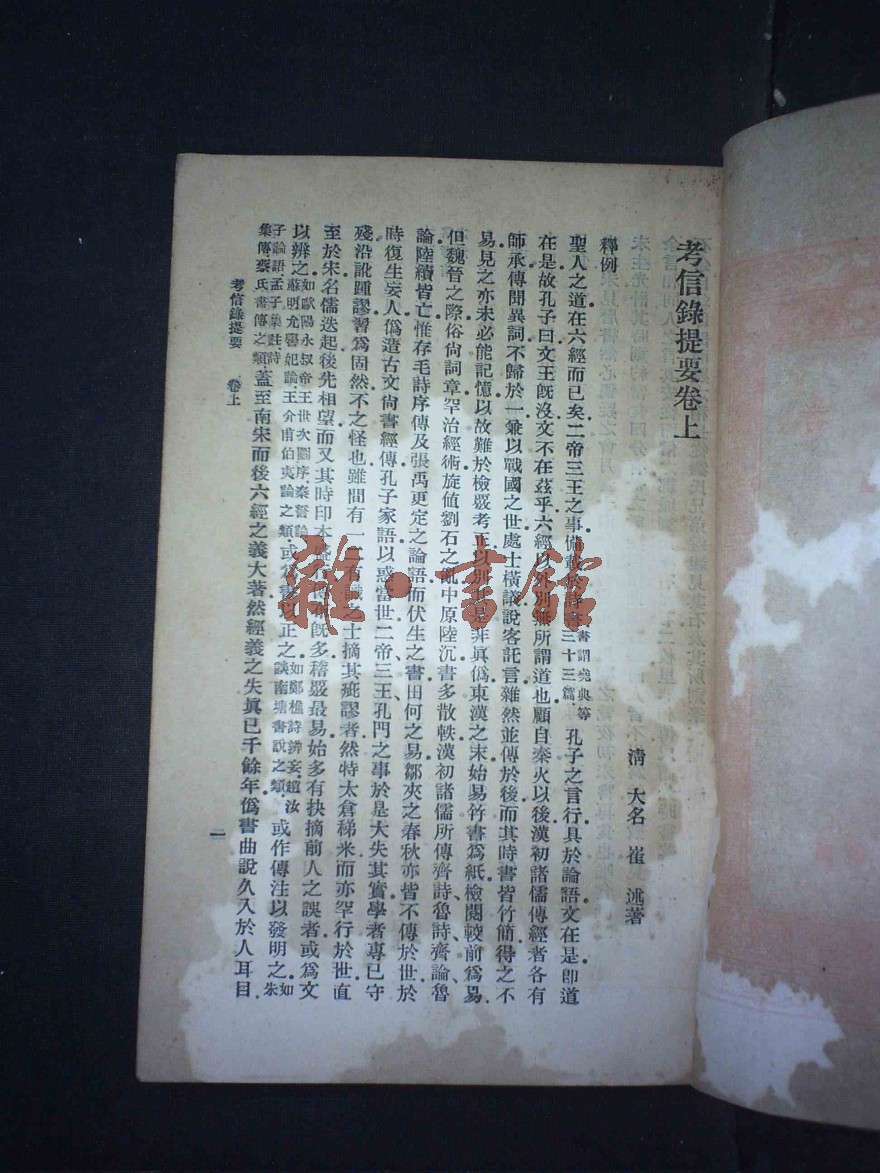 考信錄提要卷上
清 大名 崔 述著
釋例
聖人之道在六經而已矣二帝三王之事備載於詩書書謂堯典等三十三篇孔子之言行具於論語文在是卽道
在是故孔子曰文王旣沒文不在茲乎六經以外別無所謂道也顧自秦火以後漢初諸儒傳經者各有
師承傳聞異詞不歸於一兼以戰國之世處士橫議說客託言雜然並傳於後而其時書皆竹簡得之不
易見之亦未必能記憶以故難於檢覈考正以別其是非眞僞東漢之末始易竹書爲紙檢閱較前爲易
但魏晉之際俗尙詞章罕治經術旋値劉石之亂中原陸沉書多散軼漢初諸儒所傳齊詩、魯詩、齊論、魯
論陸續皆亡惟存毛詩序傳及張禹更定之論語而伏生之書田何之易鄒夾之春秋亦皆不傳於世於
時復生妄人僞造古文尙書經傳孔子家語以惑當世二帝、三王、孔門之事於是大失其實學者專已守
殘沿訛踵謬習爲固然不之怪也雖間有一二有識之士摘其疵謬者然特太倉稊米而亦罕行於世直
至於宋名儒迭起後先相望而又其時印本盛行傳布旣多稽覈最易始多有抉摘前人之誤者或爲文
以辨之如歐陽永叔帝王世次圖序秦誓論蘇明允嚳妃論王介甫伯夷論之類或爲書以正之如鄭樵詩辨妄趙汝談南塘書說之類或作傳注以發明之如朱
子論語孟子集註詩集傳蔡氏書傳之類蓋至南宋而後六經之義大著然經義之失眞已千餘年僞書曲說久入於人耳目
考信錄提要 卷上
一
雜·書館